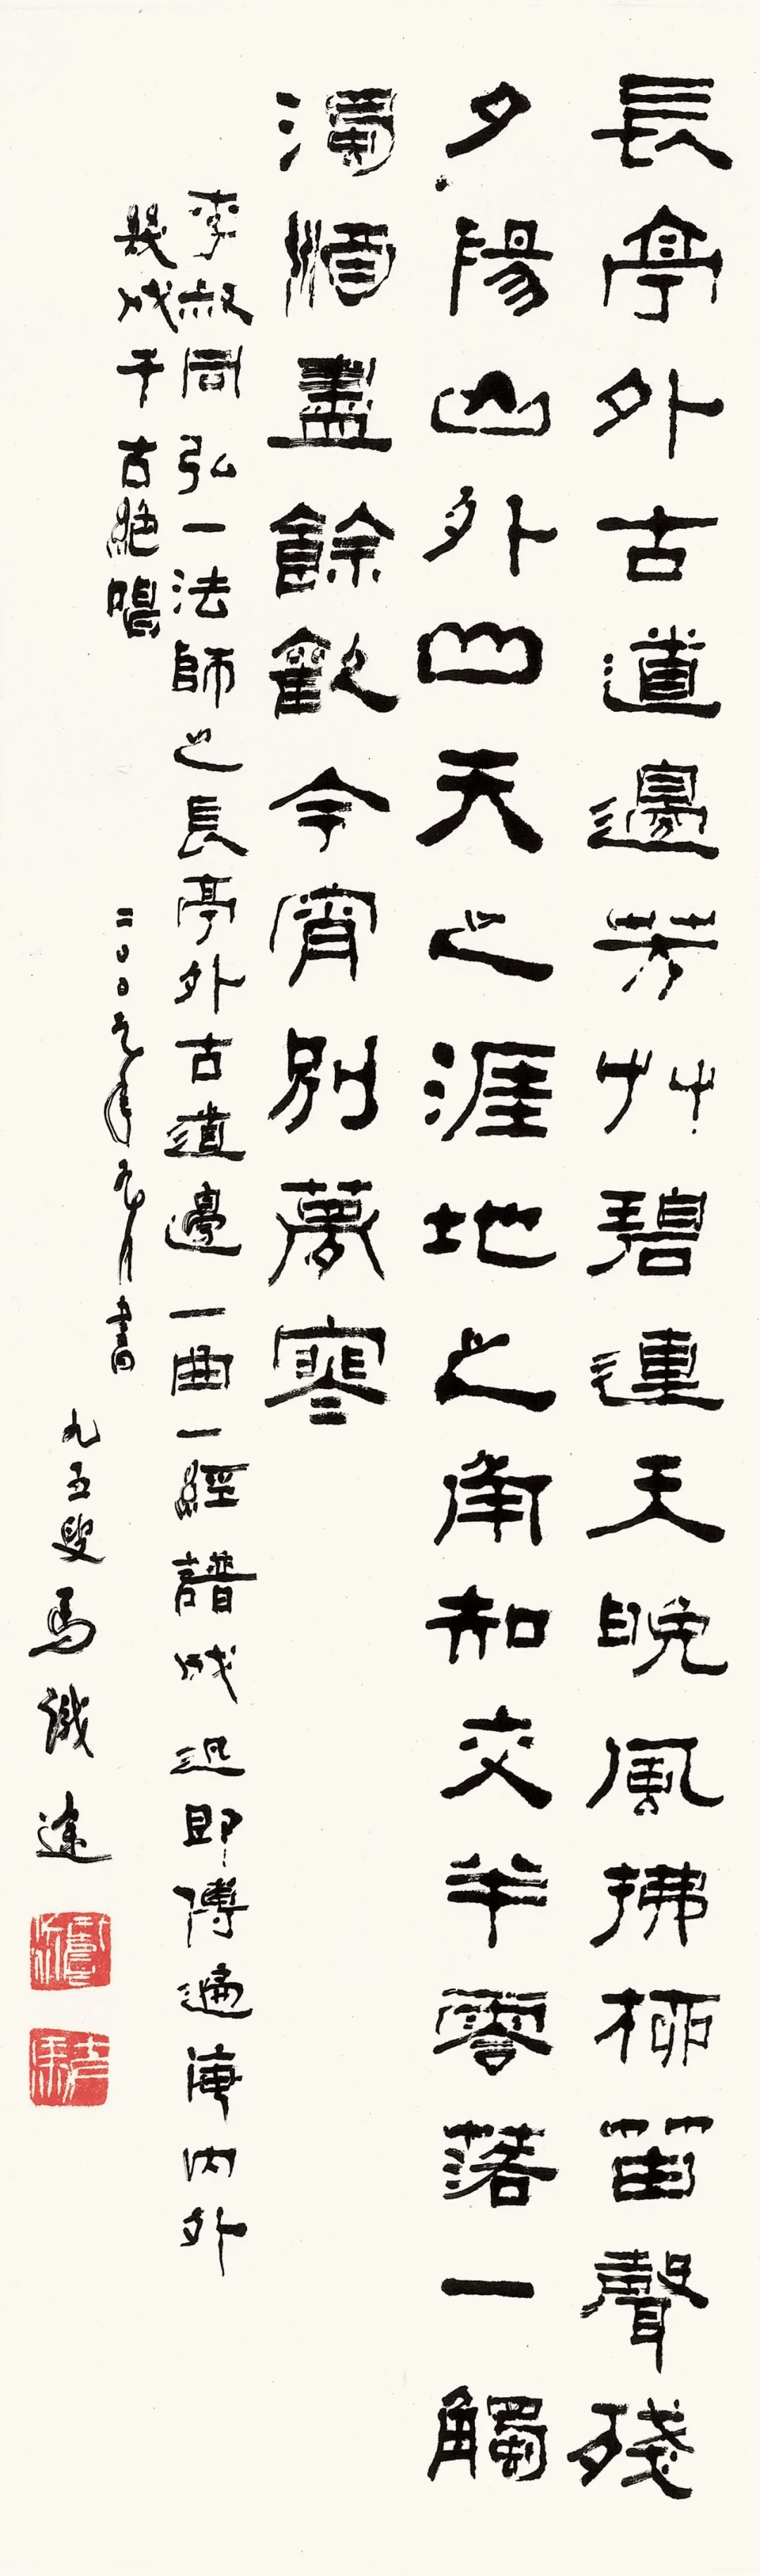 長亭外古道邊芳艸碧連天晚風拂柳笛聲殘
夕陽山外山天之涯地之角知交半零落一觸
濁酒盡餘歡今宵別夢寒
李叔同弘一法師之長亭外古道邊一曲一經譜成迅即傳遍海內外
幾成千古絕唱 二〇〇九年九月書
九五叟馬識途
老馬